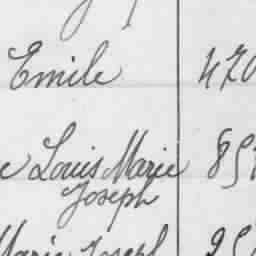 Emile 470
e Louis Marie 851
Joseph
Marie Joseph 95